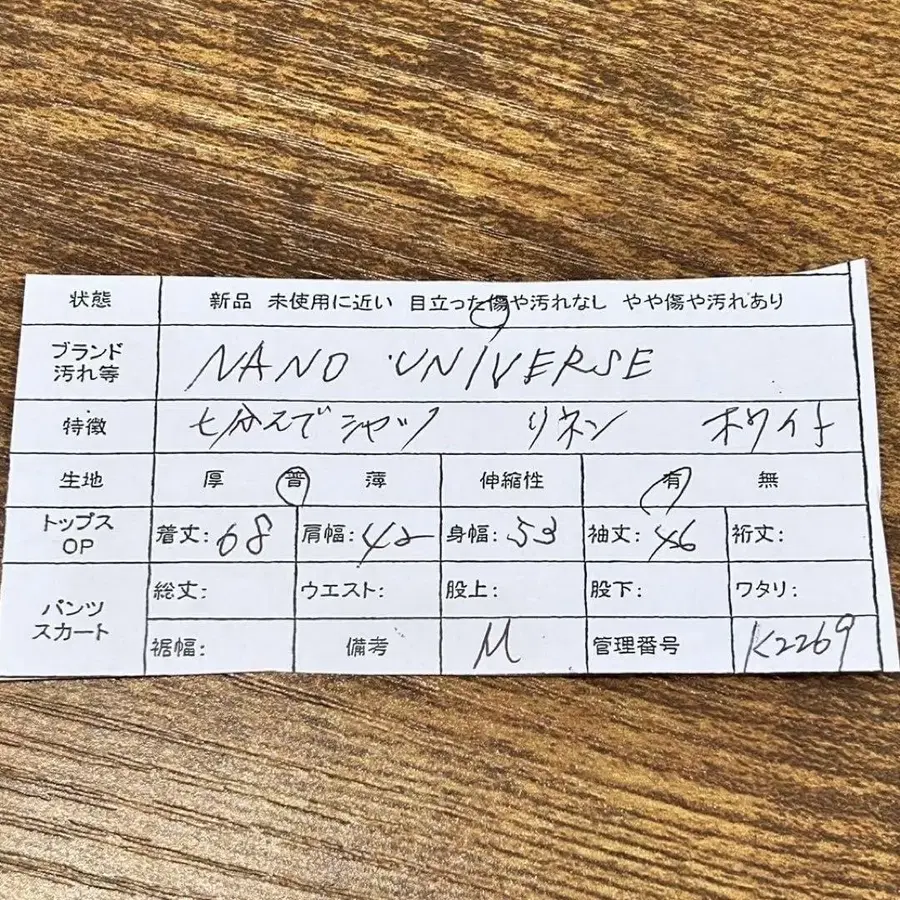 状態 新品 未使用に近い 目立った傷や汚れなし やや傷や汚れあり
ブランド
汚れ等 NANO UNIVERSE
特徴 七分そでシャツ リネン ホワイト
生地 厚 普 薄 伸縮性 有 無
トップス
OP 着丈: 68 肩幅: 42 身幅: 53 袖丈: 46 裄丈:
パンツ
スカート 総丈: ウエスト: 股上: 股下: ワタリ:
裾幅: 備考 M 管理番号 K2269